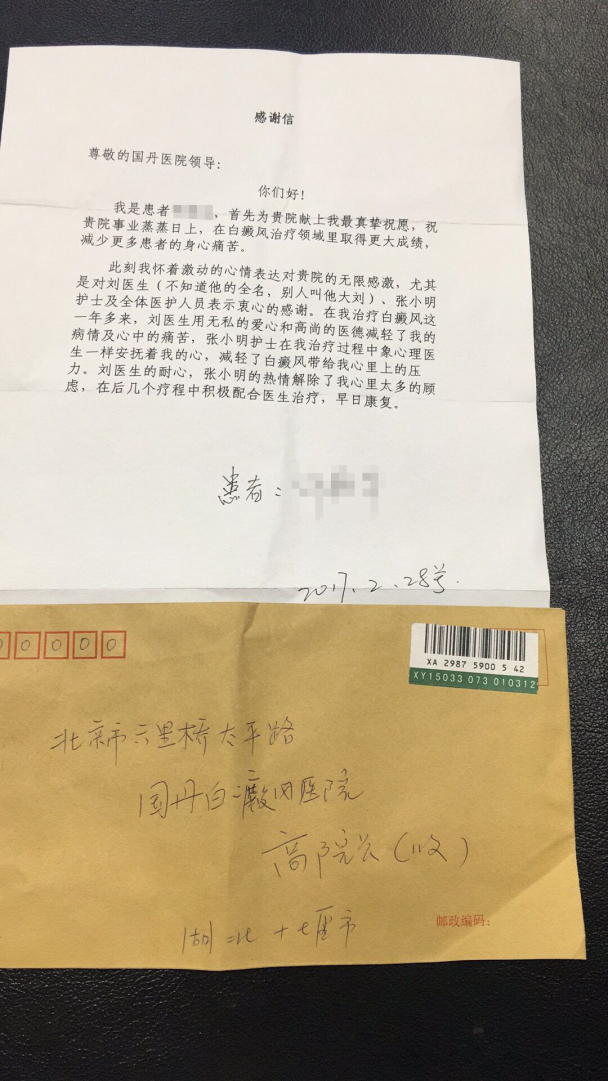 感谢信
尊敬的国丹医院领导：
你们好！
我是患者，首先为贵院献上我最真挚祝愿，祝
贵院事业蒸蒸日上，在白癜风治疗领域里取得更大成绩，
减少更多患者的身心痛苦。
此刻我怀着激动的心情表达对贵院的无限感激，尤其
是对刘医生（不知道他的全名，别人叫他大刘）、张小明
护士及全体医护人员表示衷心的感谢。在我治疗白癜风这
一年多来，刘医生用无私的爱心和高尚的医德减轻了我的
病情及心中的痛苦，张小明护士在我治疗过程中象心理医
生一样安抚着我的心，减轻了白癜风带给我心里上的压
力。刘医生的耐心，张小明的热情解除了我心里太多的顾
虑，在后几个疗程中积极配合医生治疗，早日康复。
患者：
2017.2.28号.
0 0 0 0 0
XA 2987 5900 5 42
XY15033 073 010312
北京市六里桥太平路
国丹白癜风医院
高院长（收）
湖北十堰市
邮政编码：